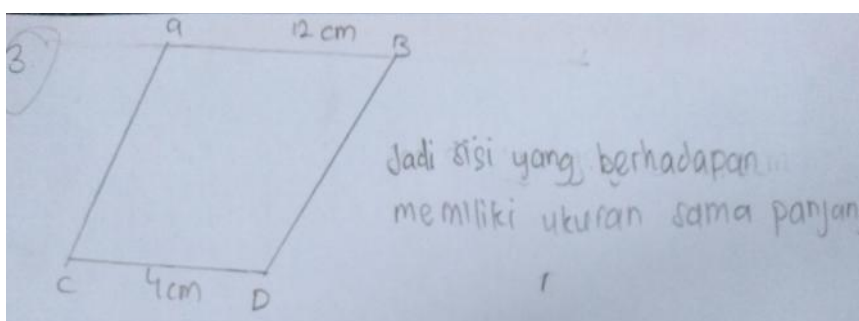 3
a 12 cm B
Jadi sisi yang berhadapan
memiliki ukuran sama panjan
C 4cm D